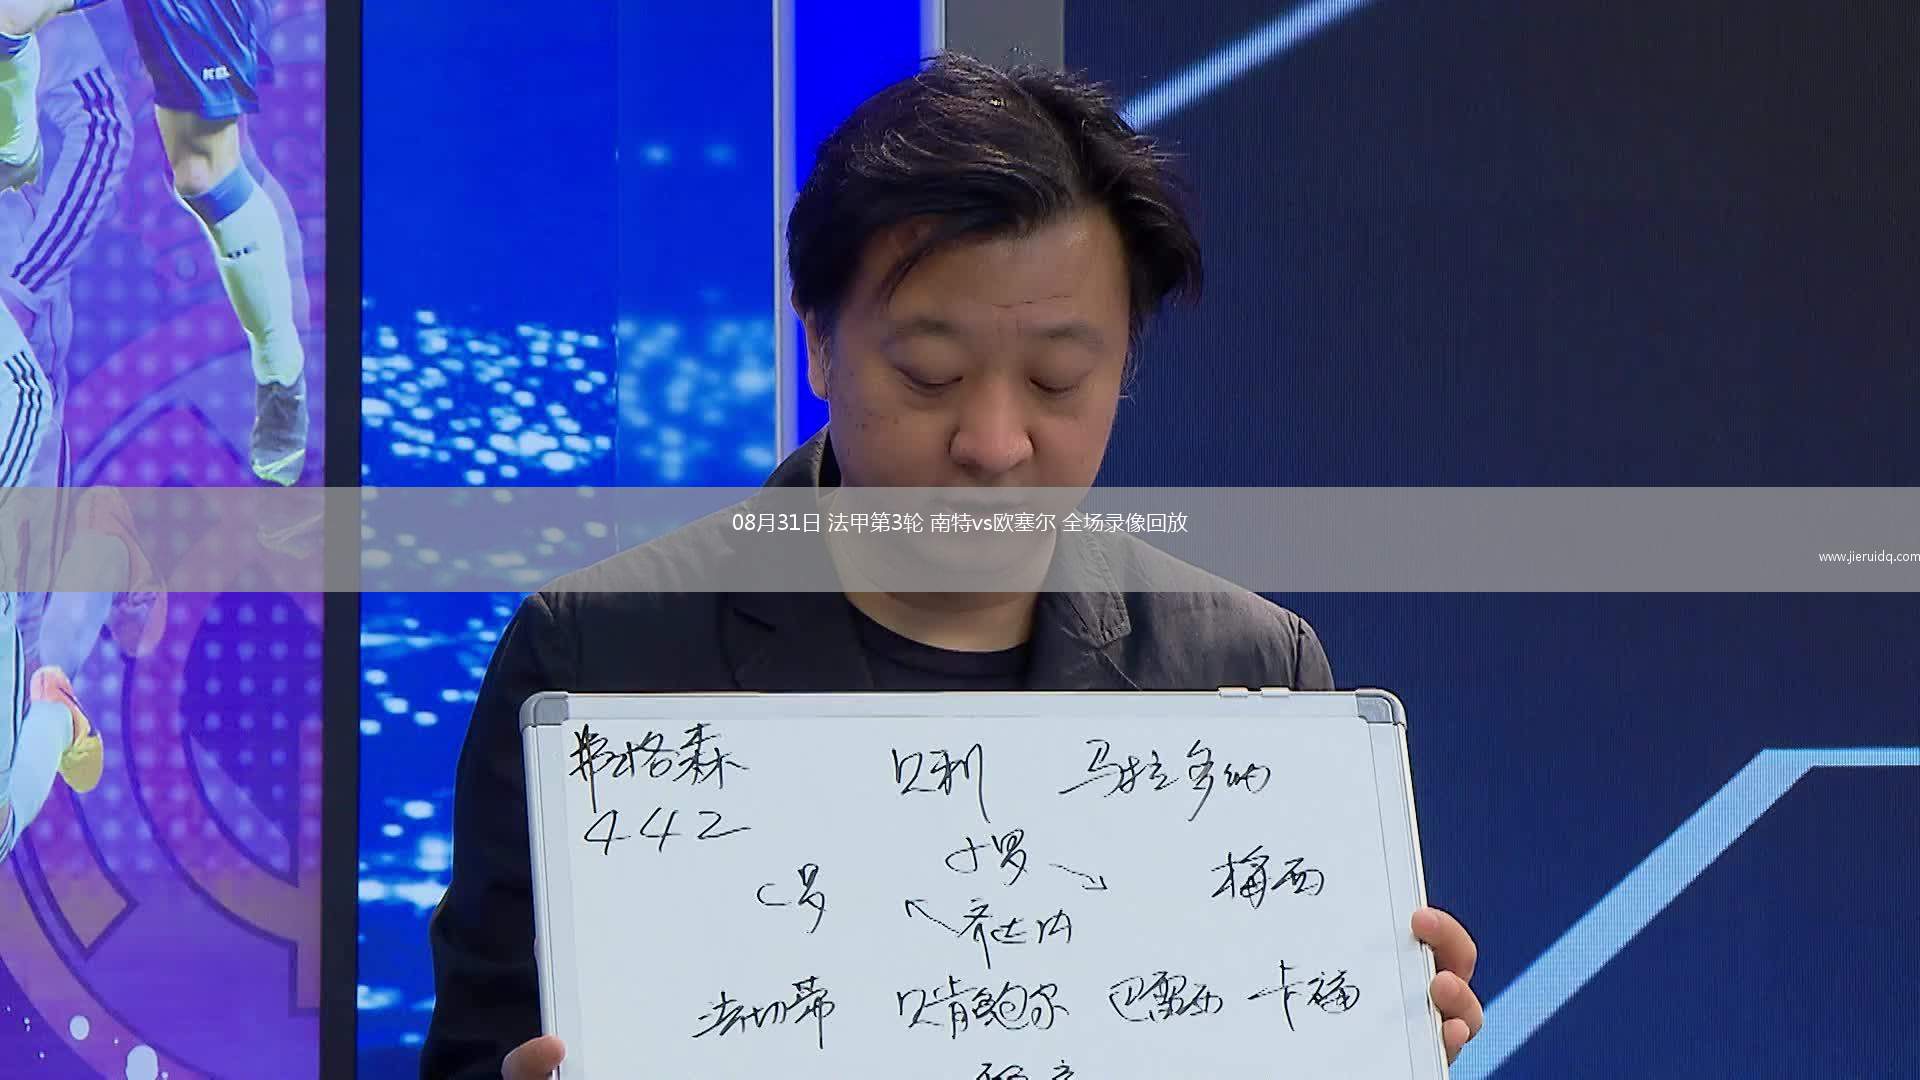 08月31日 法甲第3轮 南特vs欧塞尔 全场录像回放
www.jieruidq.com
弗格森 贝利 马拉多纳
442
小罗
C罗 梅西
齐达内
法切蒂 贝肯鲍尔 巴雷西 卡福